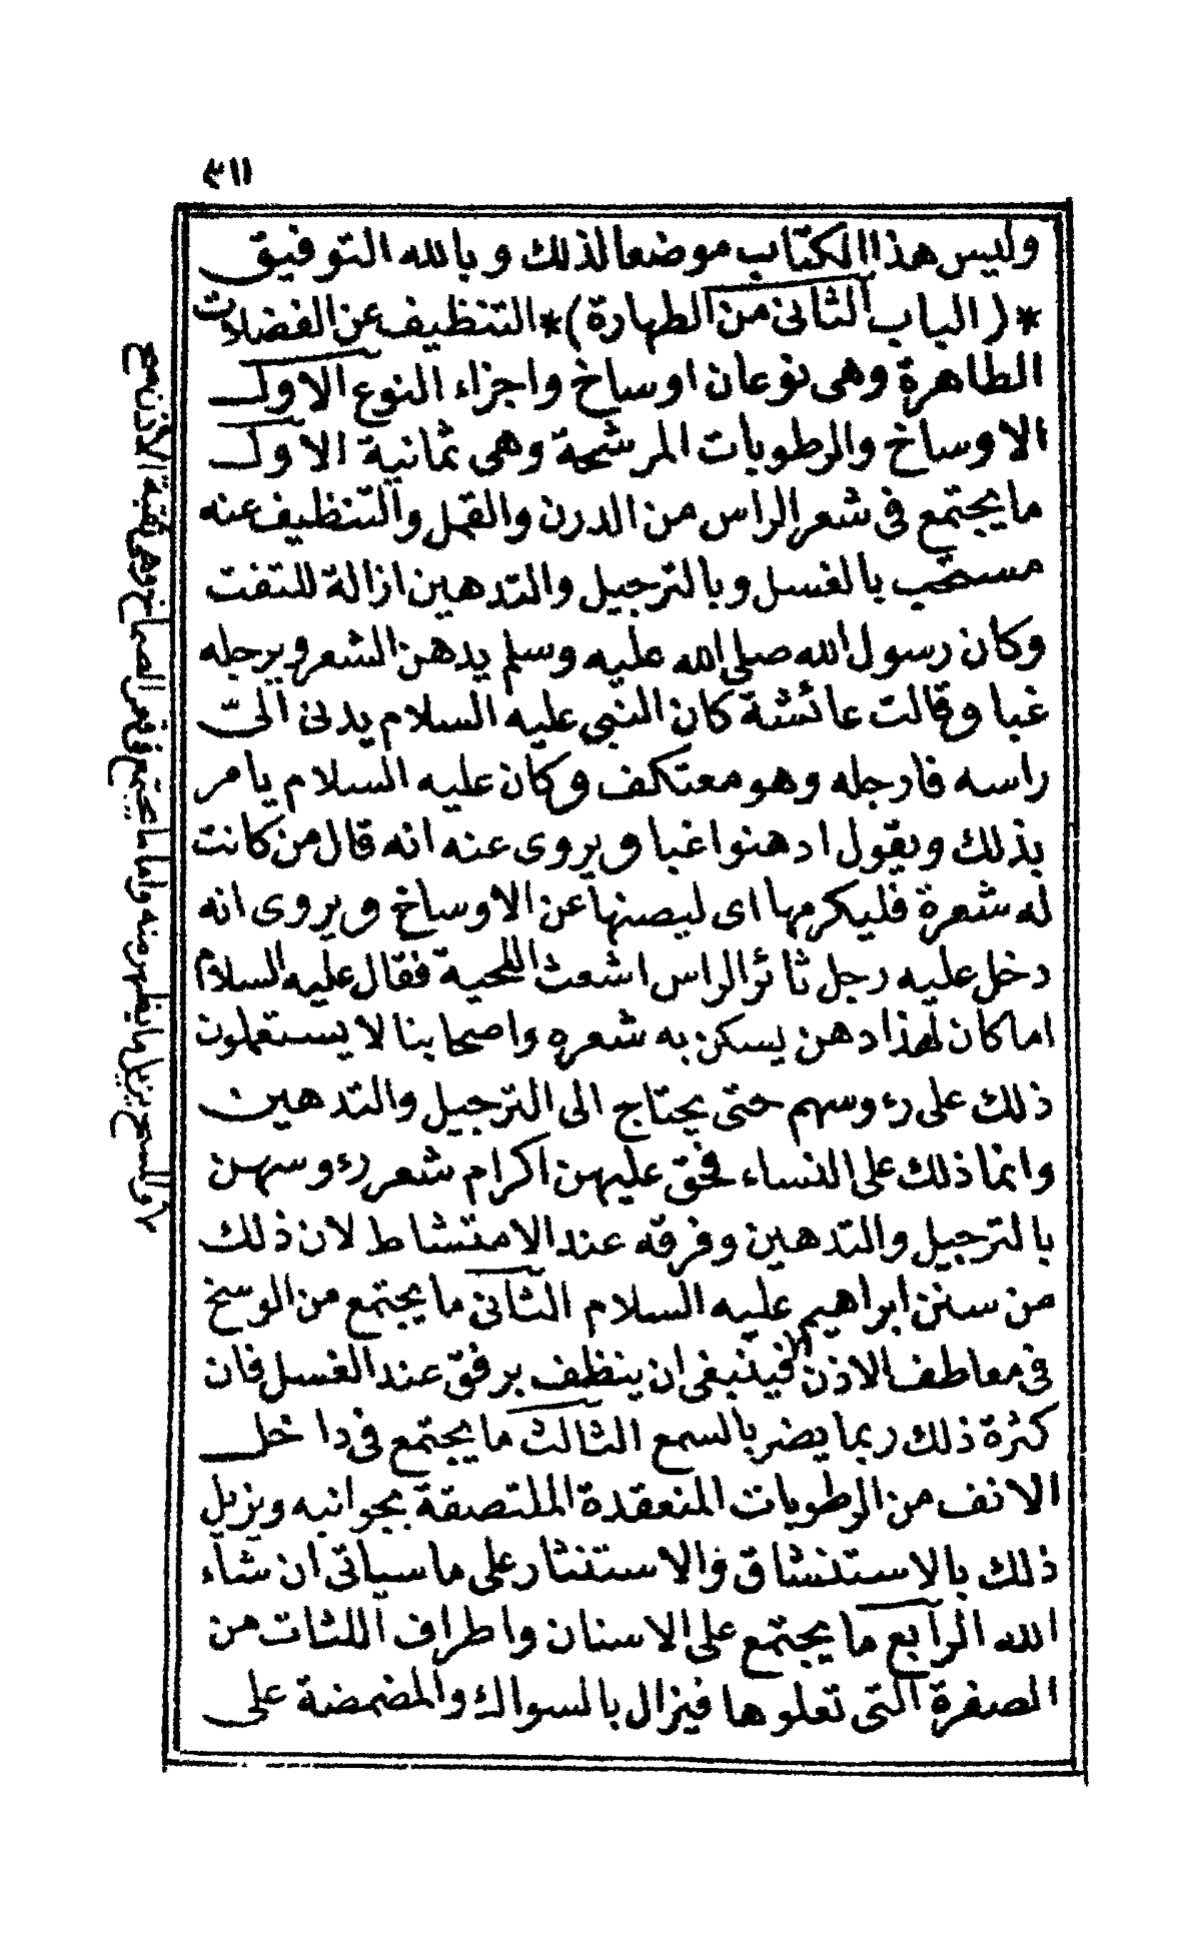 ٣١١
وليس هذا الكتاب موضعا لذلك وبالله التوفيق
*(الباب الثانى من الطهارة)* التنظيف عن الفضلات
الطاهرة وهى نوعان اوساخ واجزاء النوع الاول
الاوساخ والرطوبات المرشحة وهى ثمانية الاول
ما يجتمع فى شعر الراس من الدرن والقمل والتنظيف عنه
مستحب بالغسل وبالترجيل والتدهين ازالة للتفت
وكان رسول الله صلى الله عليه وسلم يدهن الشعر ويرجله
غبا وقالت عائشة كان النبى عليه السلام يدنى الىّ
راسه فارجله وهو معتكف وكان عليه السلام يامر
بذلك ويقول ادهنوا غبا ويروى عنه انه قال من كانت
له شعرة فليكرمها اى ليصنها عن الاوساخ ويروى انه
دخل عليه رجل ثائر الراس اشعث اللحية فقال عليه السلام
اما كان لهذا دهن يسكن به شعره واصحابنا لا يستعملون
ذلك على رءوسهم حتى يحتاج الى الترجيل والتدهين
وانما ذلك على النساء فحق عليهن اكرام شعر رءوسهن
بالترجيل والتدهين وفرقه عند الامتشاط لان ذلك
من سنن ابراهيم عليه السلام الثانى ما يجتمع من الوسخ
فى معاطف الاذن فينبغى ان ينظف برفق عند الغسل فان
كثرة ذلك ربما يضر بالسمع الثالث ما يجتمع فى داخل
الانف من الرطوبات المنعقدة الملتصقة بجوانبه ويزيل
ذلك بالاستنشاق والاستنثار على ما سياتى ان شاء
الله الرابع ما يجتمع على الاسنان واطراف اللثات من
الصفرة التى تعلوها فيزال بالسواك والمضمضة على
والمسح يزيل ما يظهر منه واما ما يجتمع فى قعر الصماخ وهى ثقبة الاذن